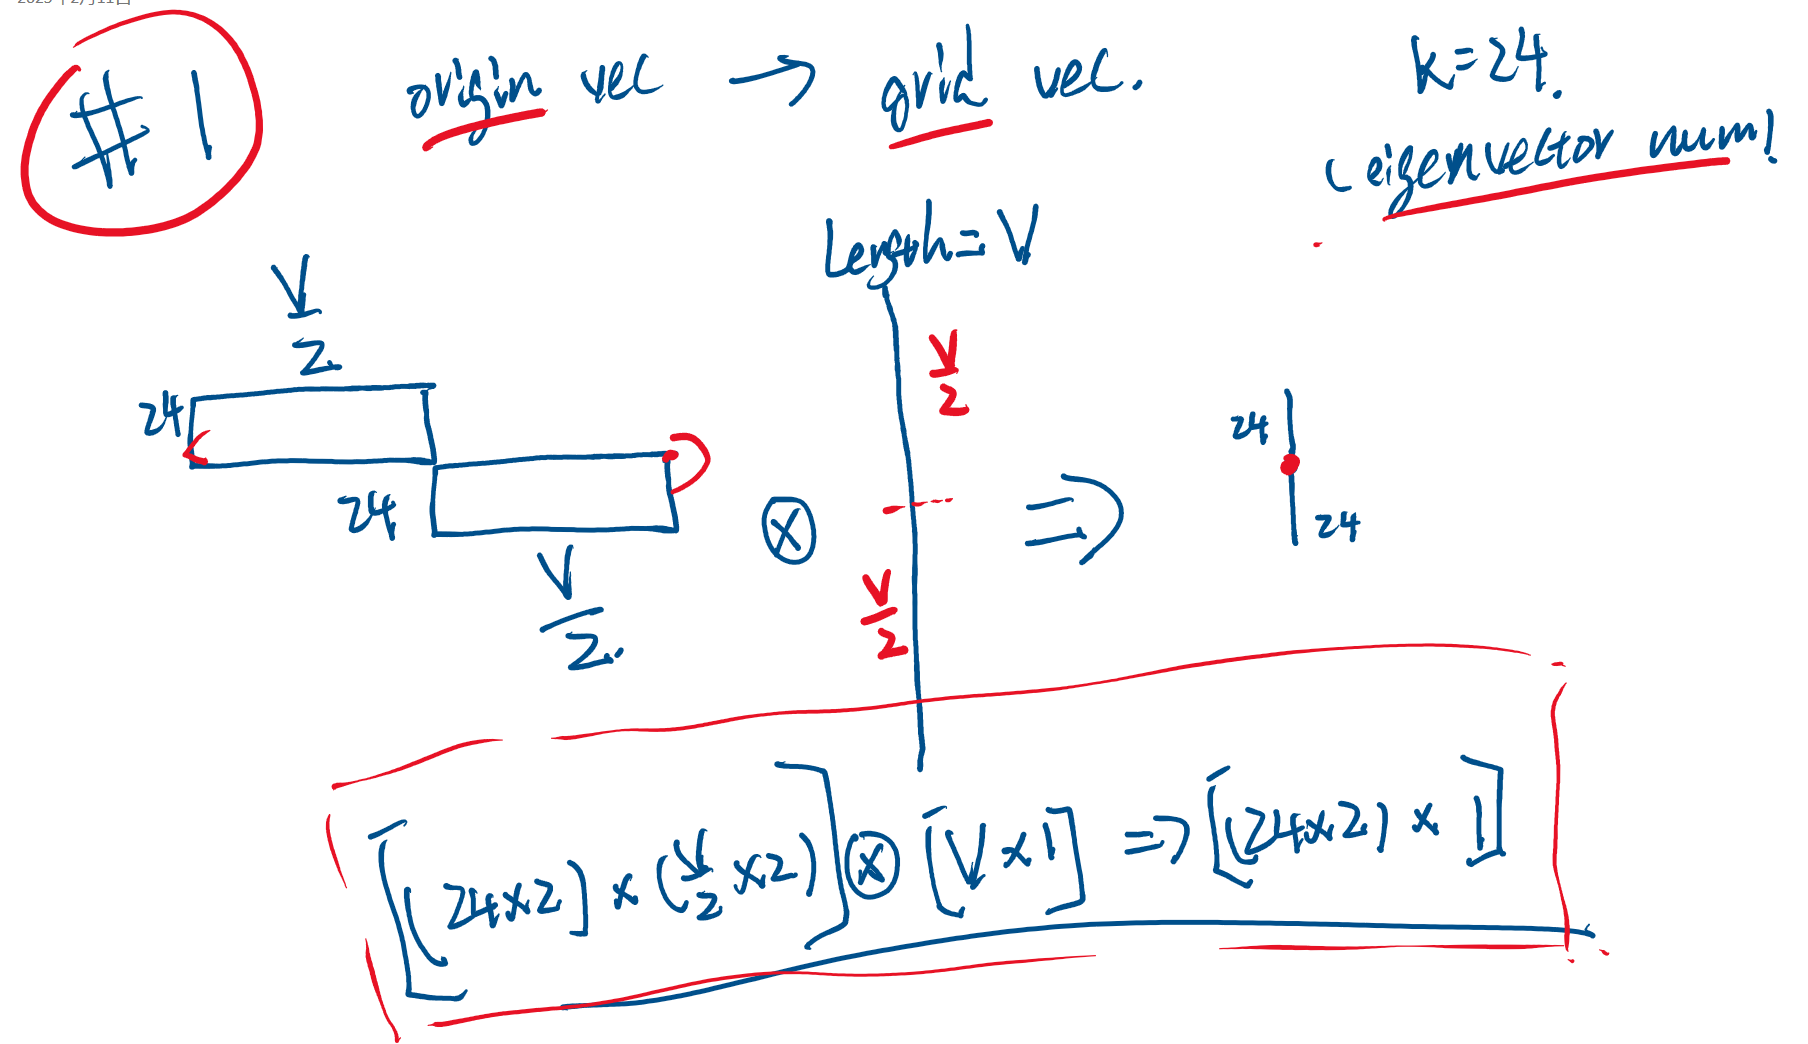 #1
origin vec → grid vec.
k=24.
(eigenvector num!
Length=V
V/2
24
24
V/2.
⊗
V/2
V/2
⇒
24
24
[[24×2]×(V/2×2)]⊗[V×1]⇒[(24×2)×1]